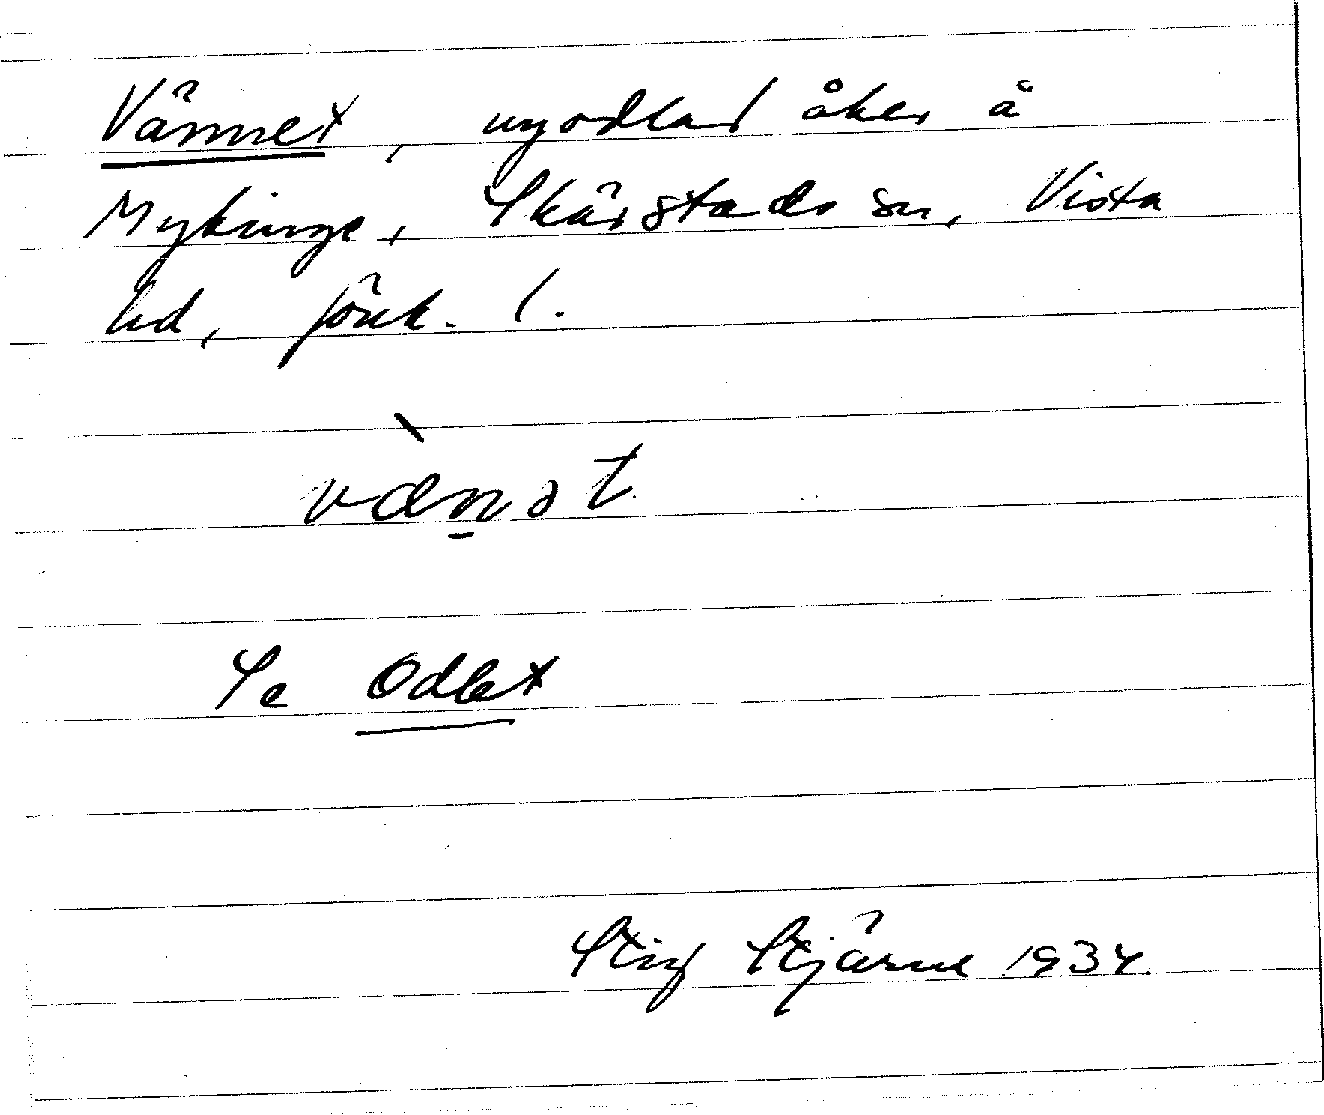 Vännet, nyodlad åker å
Mykinge, Skärstads sn, Vista
hd, Jönk. l.
væ̀n̲ət
Se Odlet
Stig Stjärne 1934.